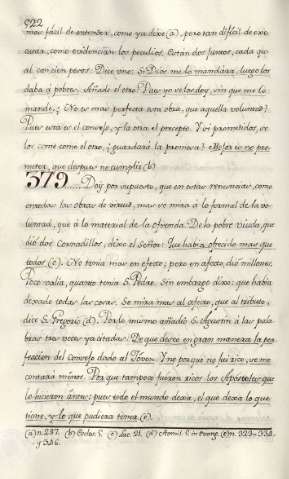 922
mas fácil de entender, como ya dixe (a), pero tan difícil de exe
cutar, como evidencian los peculios. Están dos juntos, cada qu
al con cien pesos. Dice uno: Si Dios me lo mandára, luego los
daba á pobres. Añade el otro: Pues yo se los doy, sin que me lo
mande. ¿No es mas perfecta esta obra, que aquella voluntad?
Pues esta es el consejo, y la otra el precepto. Y si prometidos, se
los come como el otro, ¿guardará la promesa? Mejor es no pro-
meter, que despues no cumplir (b)
379.... Doy, por supuesto, que en estas renuncias, como
en todas las obras de virtud, mas se mira á lo formal de la vo
luntad, que á lo material de la ofrenda. De la pobre viuda, que
dió dos Cornadillos, dixo el Señor: Que habia ofrecido mas que
todos (c). No tenía mas en efecto; pero en afecto, dió millones.
Poco valía, quanto tenía S. Pedro. Sin embargo dixo: que había
dexado todas las cosas. Se mira mas al afecto, que al tributo,
dice S. Gregorio (d). Por lo mismo añadió S. Agustin á las pala
bras tres veces ya citadas: De que deseo en gran manera la per
feccion del Consejo dado al Joven. Y no porque no fui rico, se me
contará ménos. Por que tampoco fueron ricos los Apóstoles que
lo hicieron antes; pues todo el mundo dexa, el que dexa lo que
tiene, y lo que pudiera tener (e).
(a) n. 287. (b) Eccles. 5. (c) Luc. 21. (d) Homil. 5. in Evang. (e) n. 323-338.
y 346.